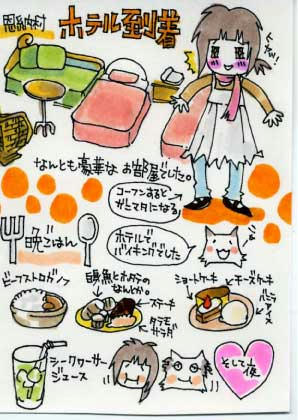 恩納村
ホテル到着
ビカッ!!
なんとも豪華な お部屋でした。
コーフンすると
ガニマタになる
晩ごはん
ホテルで
バイキングでした
ビーフストロガノフ
白身魚とホタテの
なんか。
ステーキ
タラモ
サラダ
ショートケーキ
チーズケーキ
バニラ
アイス
シークワーサー
ジュース
そして夜